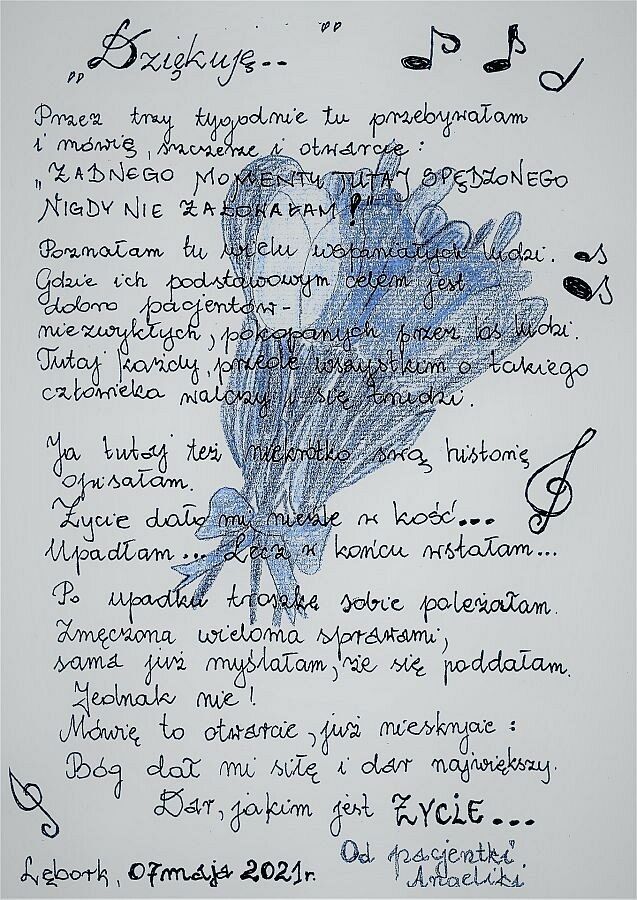 „Dziękuję..”
Przez trzy tygodnie tu przebywałam
i mówię, szczerze i otwarcie:
„ŻADNEGO MOMENTU TUTAJ SPĘDZONEGO
NIGDY NIE ŻAŁOWAŁAM!”
Poznałam tu wielu wspaniałych ludzi.
Gdzie ich podstawowym celem jest
dobro pacjentów-
niezwykłych, pokopanych przez los ludzi.
Tutaj każdy, przede wszystkim o takiego
człowieka walczy i się trudzi.
Ja tutaj też niekrótko swą historię
opisałam.
Życie dało mi nieźle w kość...
Upadłam... Lecz w końcu wstałam...
Po upadku troszkę sobie poleżałam.
Zmęczona wieloma sprawami,
sama już myślałam, że się poddałam.
Jednak nie!
Mówię to otwarcie, już nieskryjcie:
Bóg dał mi siłę i dar największy.
Dar, jakim jest ŻYCIE...
Od pacjentki
Angeliki
Lębork, 07 maja 2021r.